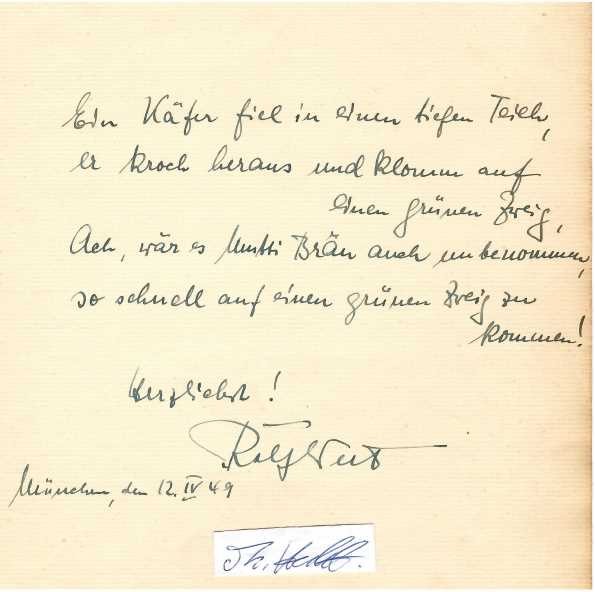 Ein Käfer fiel in einen tiefen Teich,
er kroch heraus und klomm auf
einen grünen Zweig,
Ach, wär es Mutti Bräu auch unbenommen,
so schnell auf einen grünen Zweig zu
kommen!
Herzlichst!
München, den 12. IV 49